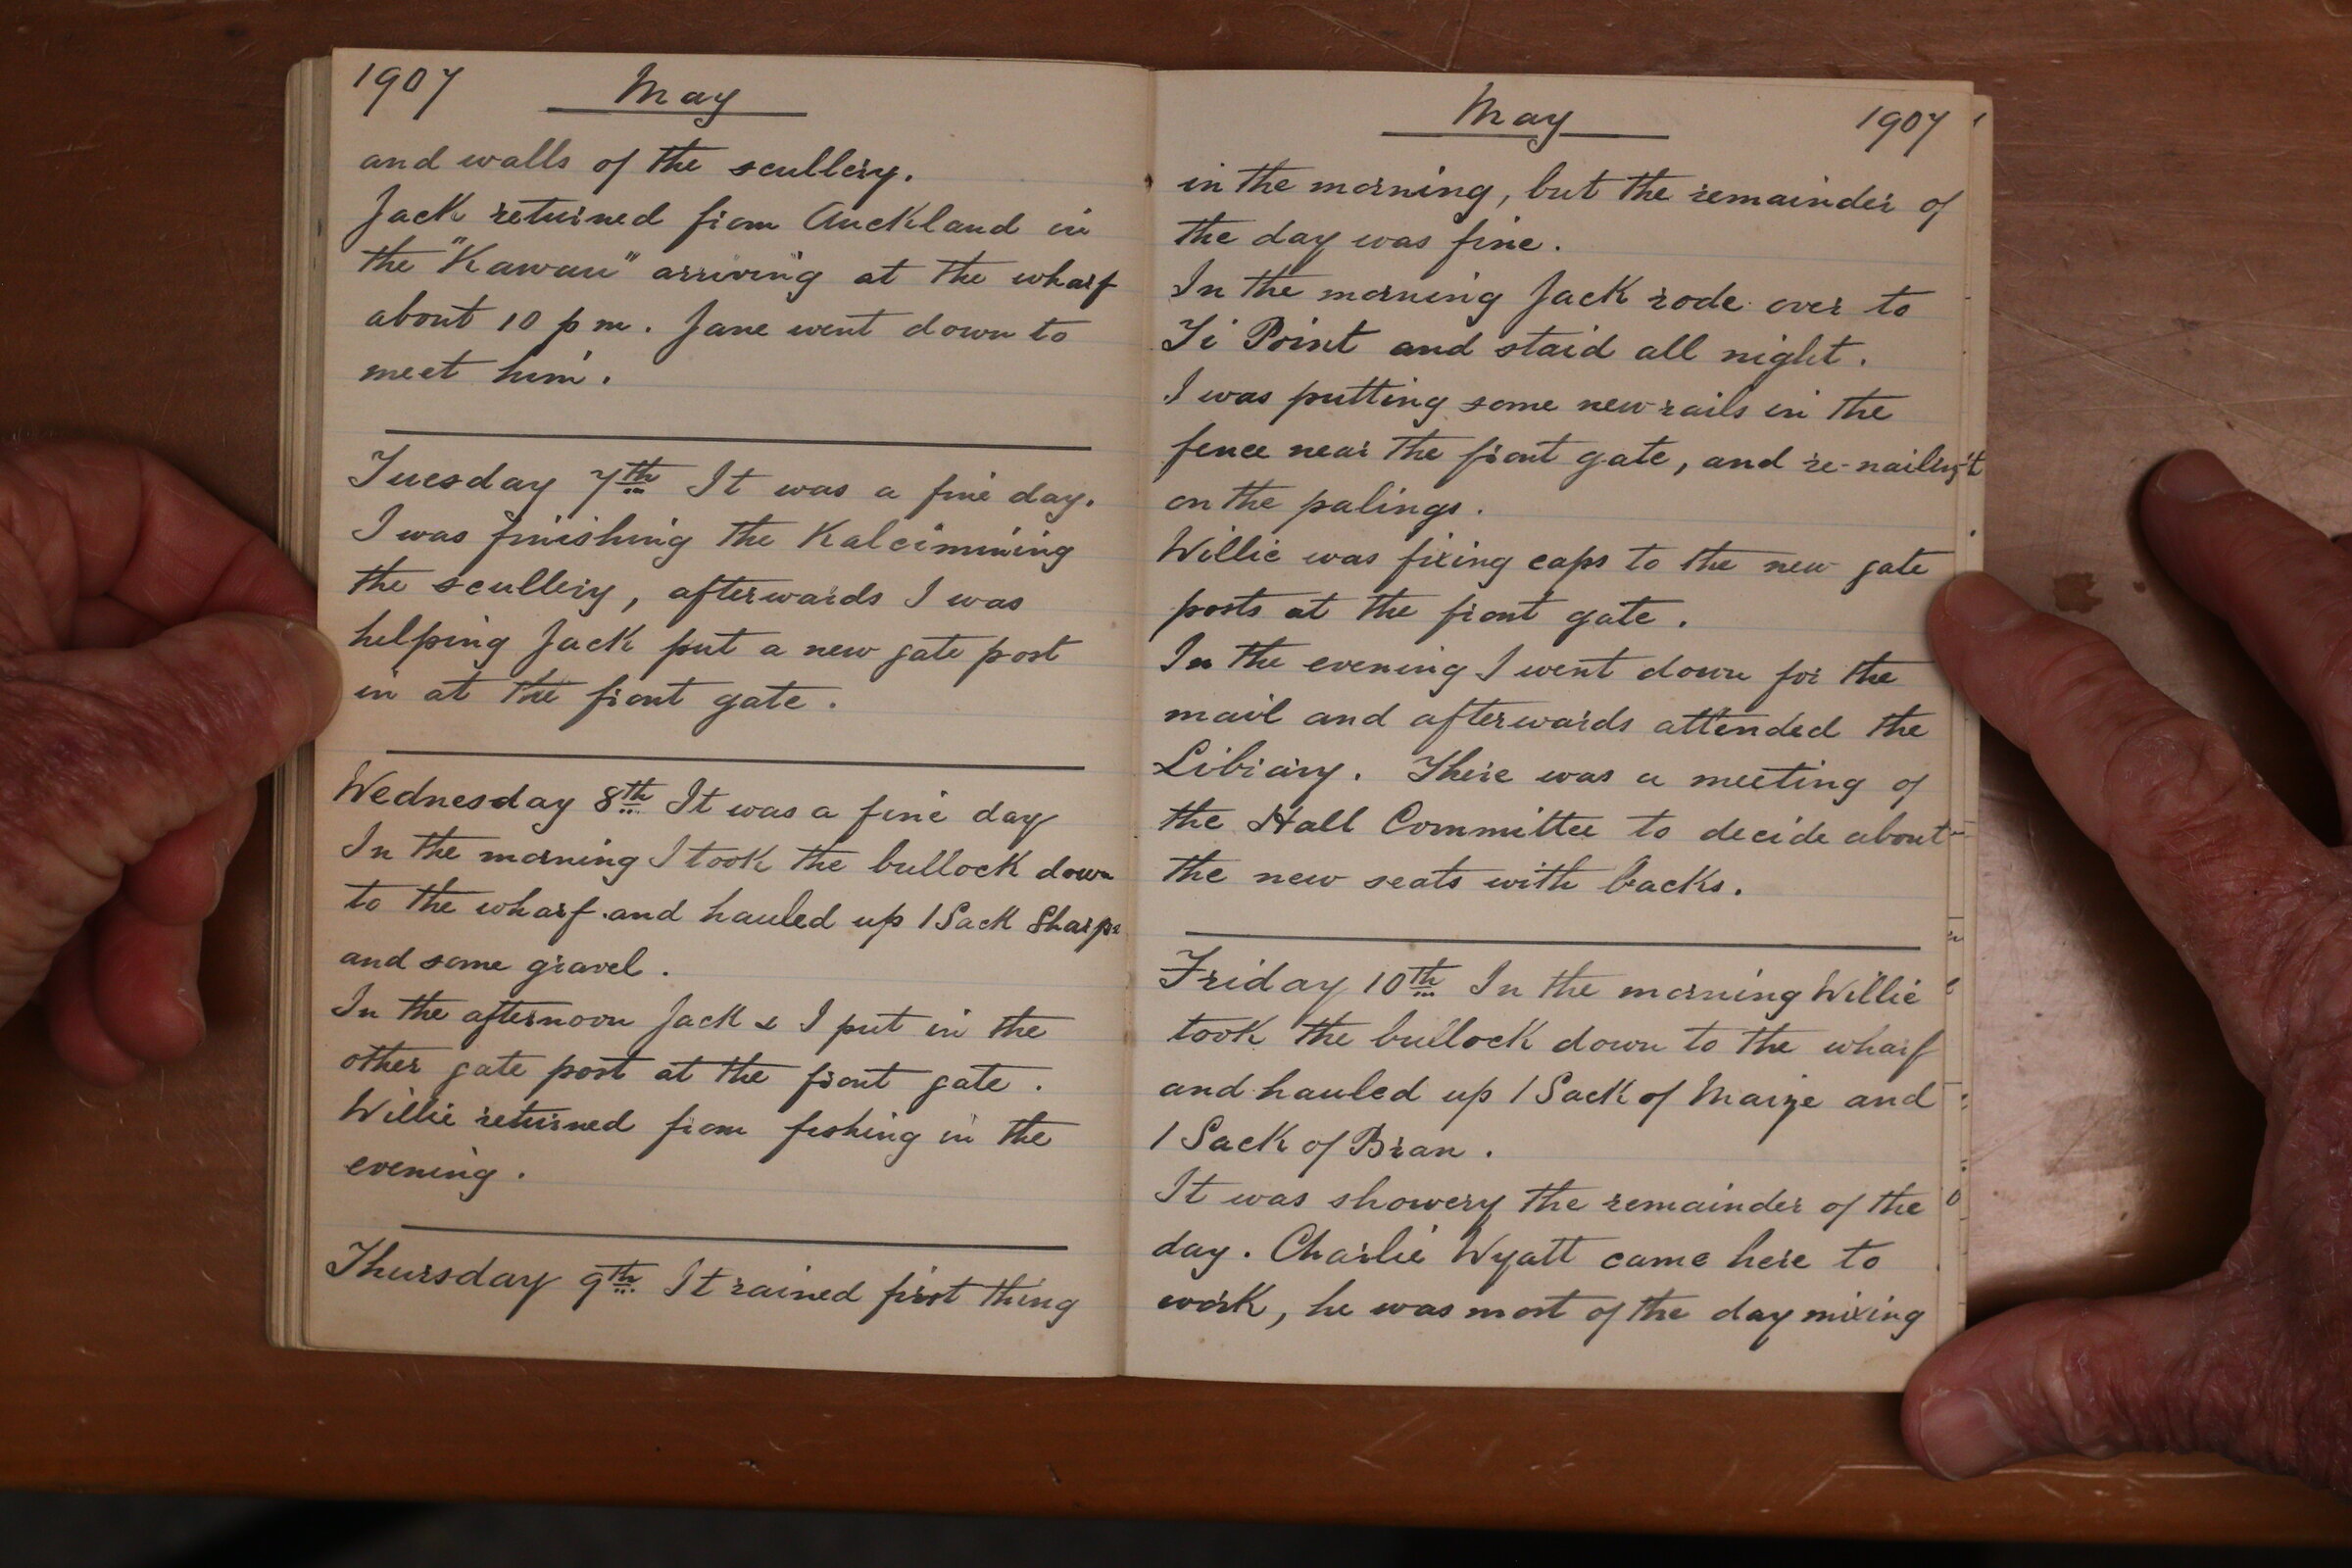 1907 May
and walls of the scullery.
Jack returned from Auckland in
the "Kawau" arriving at the wharf
about 10 p m. Jane went down to
meet him.
Tuesday 7th It was a fine day.
I was finishing the Kalcimining
the scullery, afterwards I was
helping Jack put a new gate post
in at the front gate.
Wednesday 8th It was a fine day
In the morning I took the bullock down
to the wharf and hauled up 1 Sack Sharps
and some gravel.
In the afternoon Jack & I put in the
other gate post at the front gate.
Willie returned from fishing in the
evening.
Thursday 9th It rained first thing
May 1907
in the morning, but the remainder of
the day was fine.
In the morning Jack rode over to
Ti Point and staid all night.
I was putting some new rails in the
fence near the front gate, and re-nailing
on the palings.
Willie was fixing caps to the new gate
posts at the front gate.
In the evening I went down for the
mail and afterwards attended the
Library. There was a meeting of
the Hall Committee to decide about
the new seats with backs.
Friday 10th In the morning Willie
took the bullock down to the wharf
and hauled up 1 Sack of Maize and
1 Sack of Bran.
It was showery the remainder of the
day. Charlie Wyatt came here to
work, he was most of the day mixing